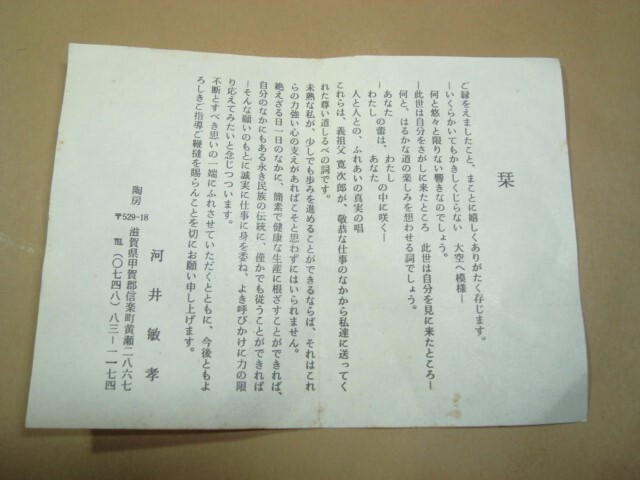 栞
ご縁をえましたこと、まことに嬉しくありがたく存じます。
―いくらかいてもかきしくじらない　大空へ模様―
何と悠々と限りない響きなのでしょう。
―此世は自分をさがしに来たところ　此世は自分を見に来たところ―
何と、はるかな道の楽しみを想わせる詞でしょう。
―あなた　の蕾は、　わたし　の中に咲く―
わたし　あなた
人と人との、ふれあいの真実の唱
これらは、義祖父　寛次郎が、敬恭な仕事のなかから私達に送ってく
れた尊い道しるべの詞です。
未熟な私が、少しでも歩みを進めることができるならば、それはこれ
らの力強い心の支えがあればこそと思わずにはいられません。
絶えざる日一日のなかに、簡素で健康な生産に根ざすことができれば、
自分のなかにもある永き民族の伝統に、僅かでも従うことができれば
―そんな願いのもとに誠実に仕事に身を委ね、よき呼びかけに力の限
り応えてみたいと念じつつ­います。
不断とすべき思いの一端にふれさせていただくとともに、今後ともよ
ろしきご指導ご鞭撻を賜らんことを切にお願い申し上げます。
河井敏孝
陶房
〒529-18
滋賀県甲賀郡信楽町黄瀬二八六七
℡（〇七四八）八三―一一七四